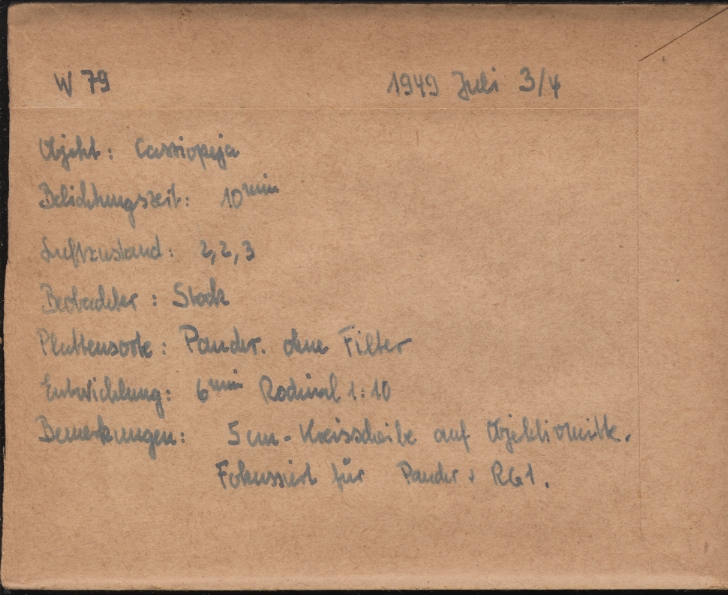 W 79 1949 Juli 3/4
Objekt: Cassiopeja
Belichtungszeit: 10min
Luftzustand: 2,2,3
Beobachter: Stock
Plattensorte: Panchr. ohne Filter
Entwicklung: 6min Rodinal 1:10
Bemerkungen: 5 cm - Kreisscheibe auf Objektivmitte.
Fokussiert für Panchr + RG1.